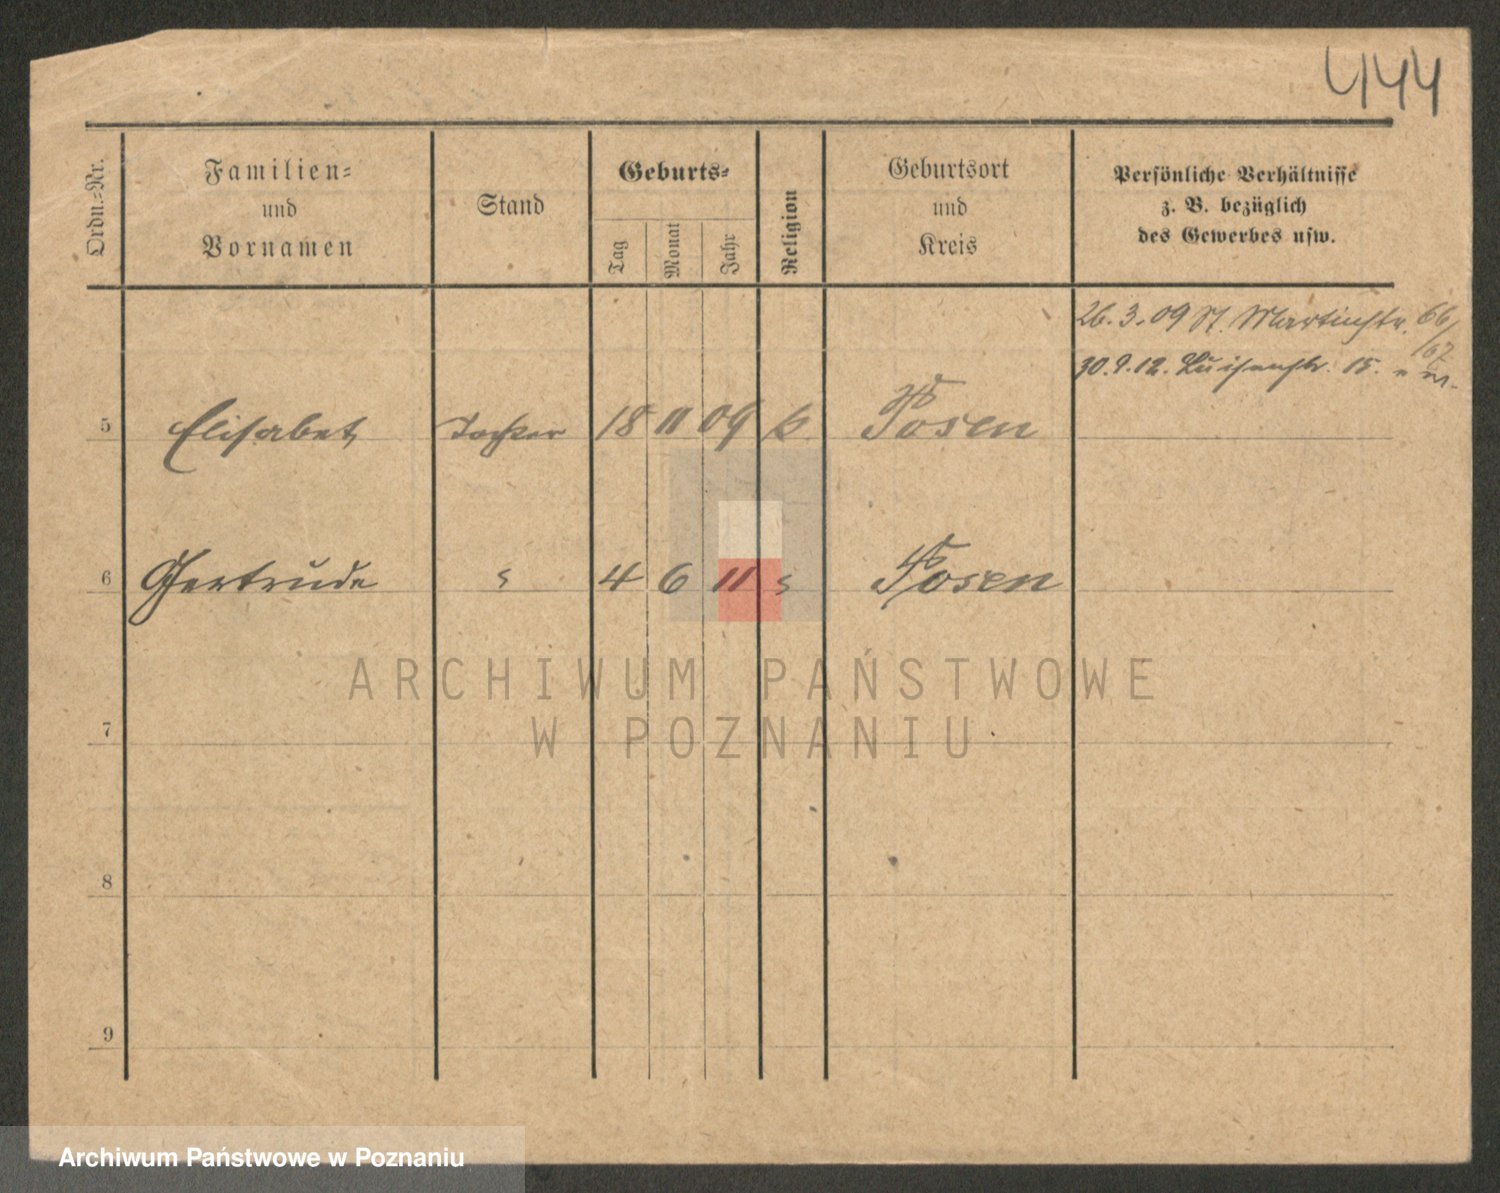 444
Ordn.-Nr.
Familien-
und
Vornamen
Stand
Geburts-
Tag
Monat
Jahr
Religion
Geburtsort
und
Kreis
Persönliche Verhältnisse
z. B. bezüglich
des Gewerbes usw.
26. 3. 09 St. Martinstr. 66/67
30. 9. 12. Luisenstr. 15.
5 Elisabet Tochter 18 11 09 k Posen
6 Gertrude " 4 6 11 " Posen
7
8
9
ARCHIWUM PAŃSTWOWE
W POZNANIU
Archiwum Państwowe w Poznaniu